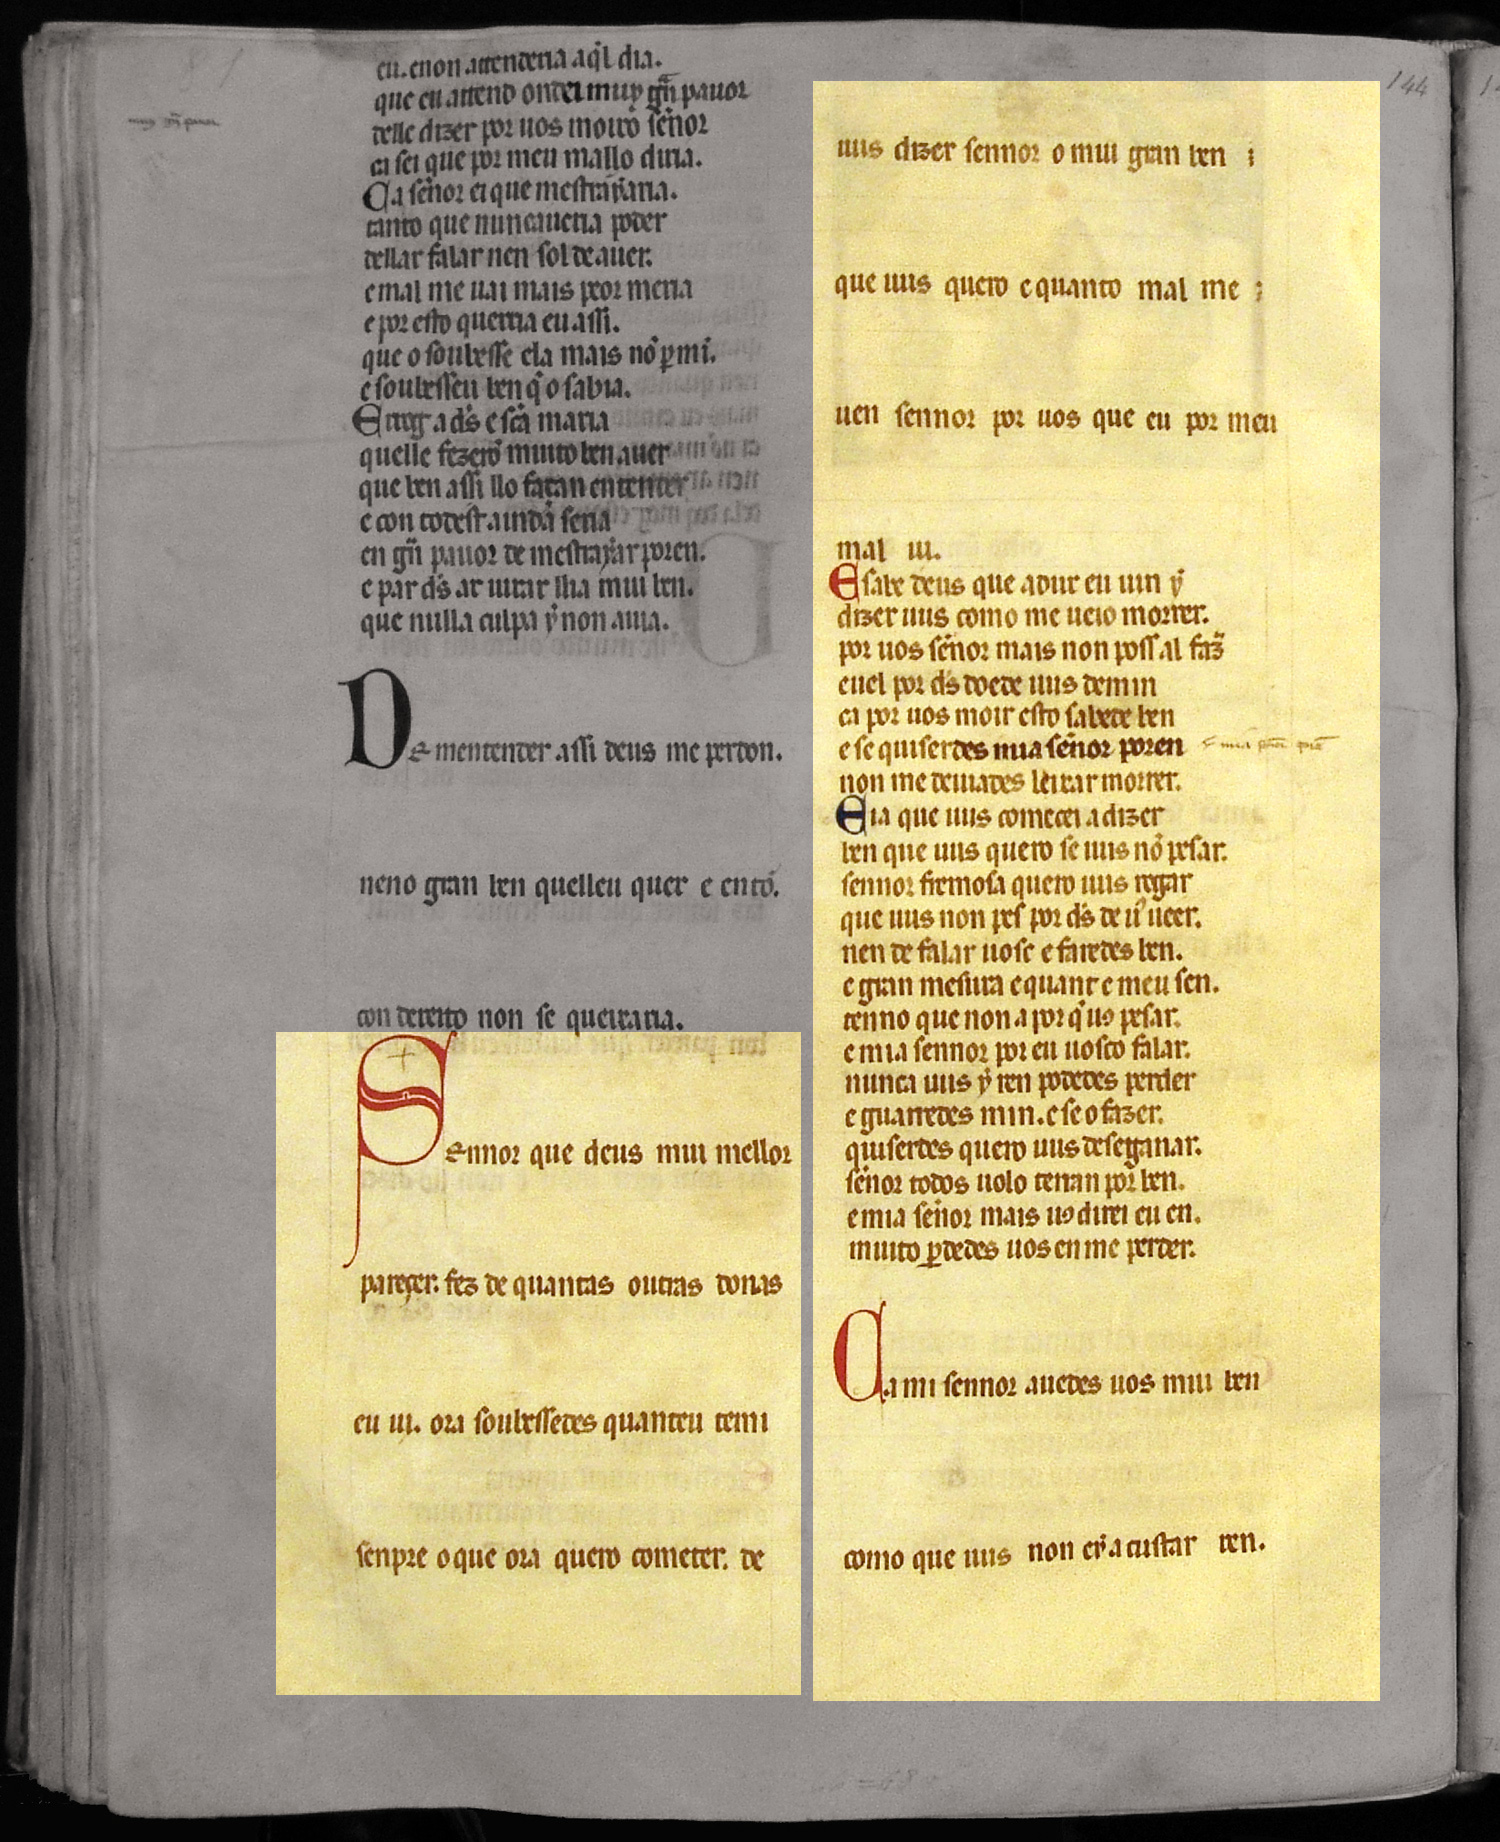 eu. e non attenderia aq̃l dia.
que eu attend onđei muy grã pauor
delle dizer por uos moiro sẽnor
ca sei que por meu mallo diria.
Ca sẽnor ei que mestrayaria.
tanto que nuncaueria poder
dellar falar nen sol deauer.
e mal me uai mais peor meria
e por esto querria eu assi.
que o soubesse ela mais nõ ꝑ mĩ.
e soubesseu ben q̃ o sabia.
E rrog a d̃s e sc̃a maria
quelle fezerõ muito ben auer
que ben assi llo façan entender
e con todest ainda seria
en gũ pauor de mestrayar poren.
e par d̃s ar iurar llia mui ben.
que nulla culpa ẏ non auia.
De mentender assi deus me perdon.
neno gran ben quelleu quer e entõ.
con dereito non se queixaria.
Sennor que deus mui mellor
pareçer. fez de quantas outras donas
eu ui. ora soubessedes quanteu temi
senpre o que ora quero cometer. de
uus dizer sennor o mui gran ben
que uus quero e quanto mal me
uen sennor por uos que eu por meu
mal ui.
E sabe deus que adur eu uin ẏ
dizer uus como me ueio morrer.
por uos sẽnor mais non poss al faz̃
euel por d̃s doede uus demin
ca por uos moir esto sabede ben
e se quiserdes mia sẽnor poren
non me deuiades leixar morrer.
E ia que uus comecei a dizer
ben que uus quero se uus nõ pesar.
sennor fremosa quero uus rogar
que uus non pes por d̃s de u⁹ ueer.
nen de falar uosc e faredes ben.
e gran mesura e quant e meu sen.
tenno que non a por q̃ u⁹ pesar.
e mia sennor por eu uosco falar.
nunca uus ẏ ren podedes perder
e guarredes min. e se o fazer.
quiserdes quero uus desegãnar.
sẽnor todos uolo terran por ben.
e mia sẽnor mais u⁹ direi eu en.
muito ꝑdedes uos en me perder.
Ca mi sennor auedes uos mui ben
como que uus non er á custar ren.
144